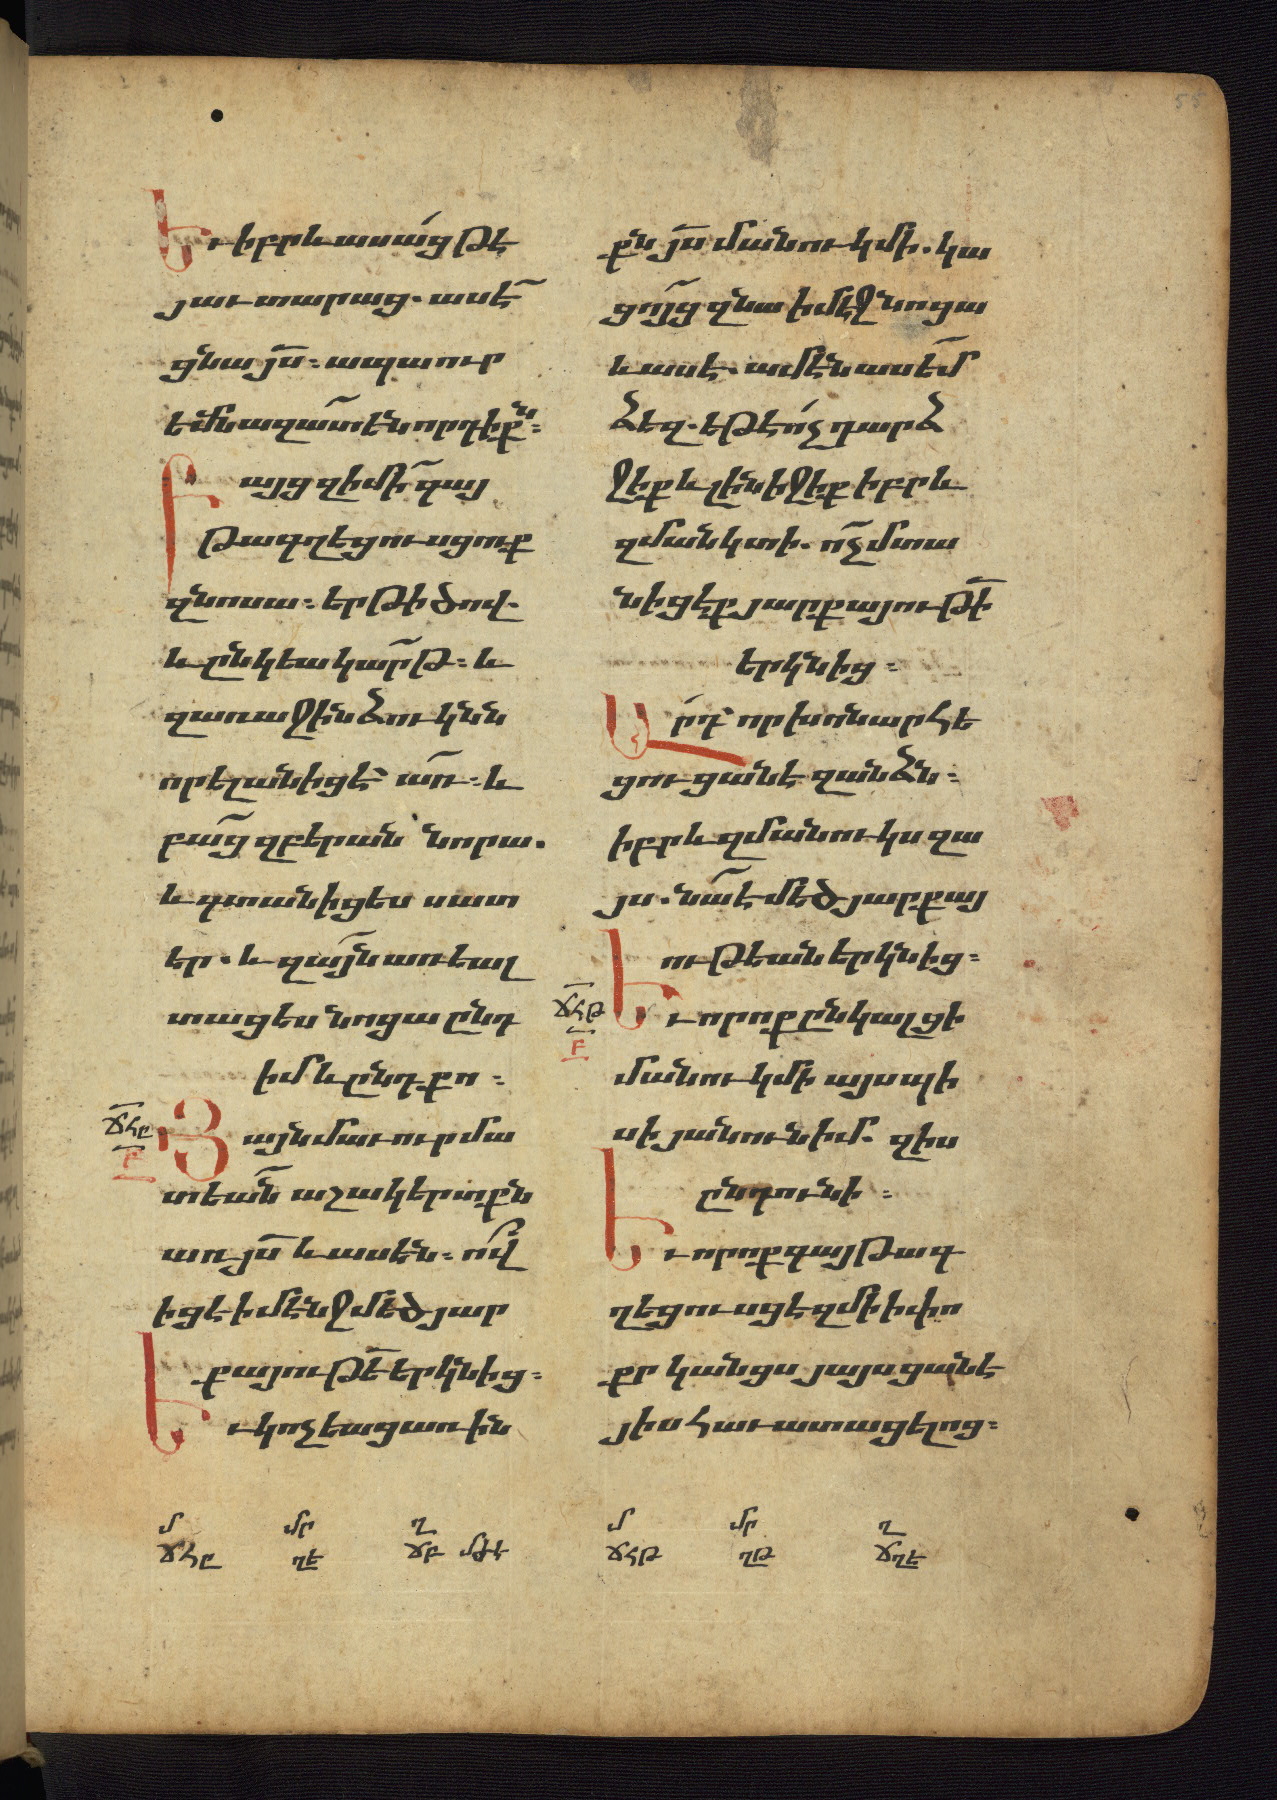 Եւ իբրև ասաց թէ
յաւտարաց. ասէ
ցնա յս։ ապա ուր
եմն ազատ են որդիքն։
Բայց զի մի գայ
թագղեցուսցուք
զնոսա։ երթ ի ծով.
և ընկեա կարթ։ և
զառաջին ձուկնն
որ ելանիցէ առ։ և
բաց զբերան նորա.
և գտանիցես սատ
եր. և զայն առեալ
տացես նոցա ընդ
իմ և ընդ քո։
ՃՀԸ
Բ
Յայնմ աւուր մա
տեան աշակերտքն
առ յս և ասեն։ ով
իցէ ի մէնջ մեծ յար
քայութե երկնից։
Եւ կոչեաց առ ին
քն յս մանուկ մի. կա
ցոյց զնա ի մէջ նոցա
և ասէ. ամէն ասեմ
ձեզ. եթէ ոչ դարձ
ջիք և լինիջիք իբրև
զմանկտի. ոչ մտա
նիցէք յարքայութի
երկնից։
Արդ որ խոնարհե
ցուցանէ զանձն։
իբրև զմանուկս զա
յս. նա է մեծ յարքայ
ութեան երկնից։
ՃՀԹ
Բ
Եւ որ ոք ընկալցի
մանուկ մի այսպի
սի յանուն իմ. զիս
ընդունի։
Եւ որ ոք գայթագ
ղեցուսցէ զմի ի փո
քր կանցս յայսցանէ
յիս հաւատացելոց։
մ մր ղ մ մր ղ
ՃՀԸ ՂԵ ՃԲ մթե ՃՀԹ ՂԹ ՃՂԵ